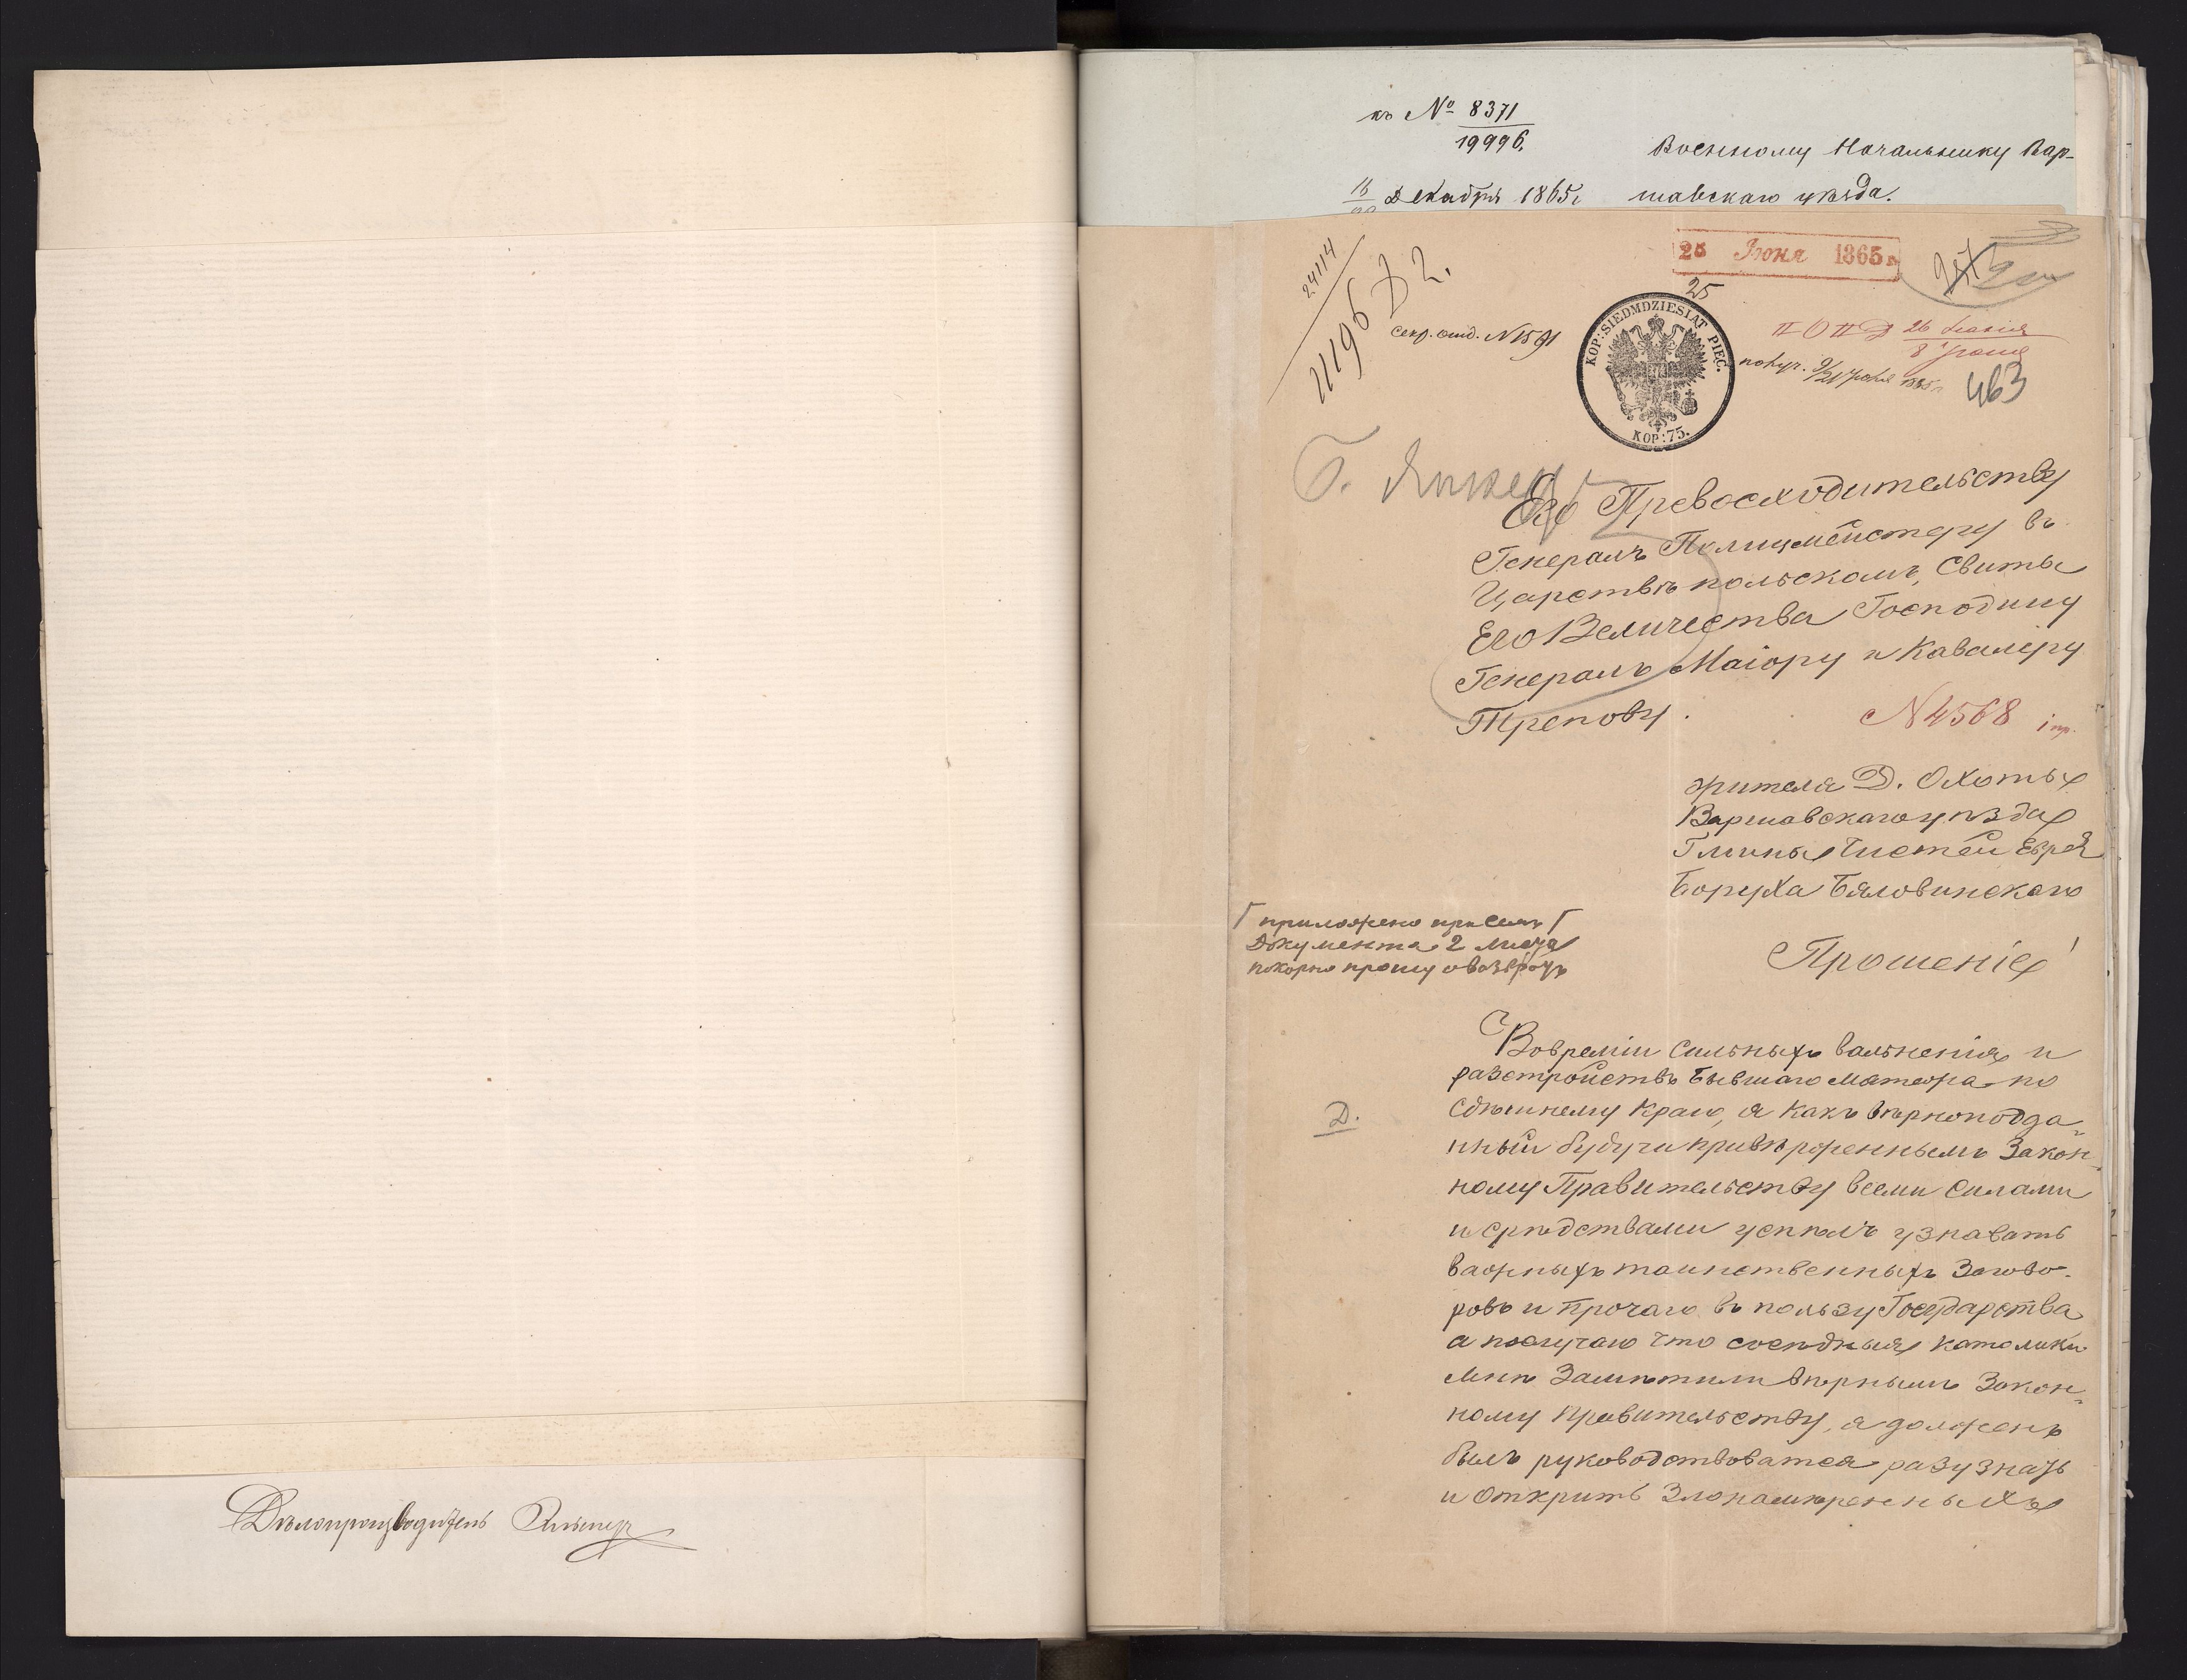 Дѣлопроизводитель
къ № 8371
19996.
Военному Начальнику Вар-
16 Декабря 1865 г.
шавскаго уѣзда.
24114
11196 Д 2.
25 Іюня 1865 г.
25
секр. отд. N 1591
KOP: SIEDMDZIESIAT PIĘĆ.
KOP: 75.
26
8
463
Его Превосходительству
Генералъ Полицмейстеру въ
Царствѣ польскомъ, Свиты
Его Величества Господину
Генералъ Маіору и Кавалеру
Трепову.
N 4568
жителя Д. Охоты
Варшавскаго уѣзда
Гмины Чистей Еврея
Боруха Бяловинскаго
приложено при семъ
Документа 2 листа
покорно прошу о
Прошеніе
Вовреміи Сильныхъ вальненія и
разстройствъ бывшаго мятежа по
Сдѣшнему Краю, я какъ вѣрноподда-
нный будучи приверженнымъ Закон-
ному Правительству всеми Силами
и срѣдствами успѣлъ узнавать
важныхъ таинственныхъ Загово-
ровъ и прочаго въ пользу Государства
а послучаю что сосѣдныя католики
Мнѣ Замѣтили вѣрнымъ Закон-
ному правительству, я долженъ
былъ руководствоватся разузнать
и открить Злонамѣренныхъ